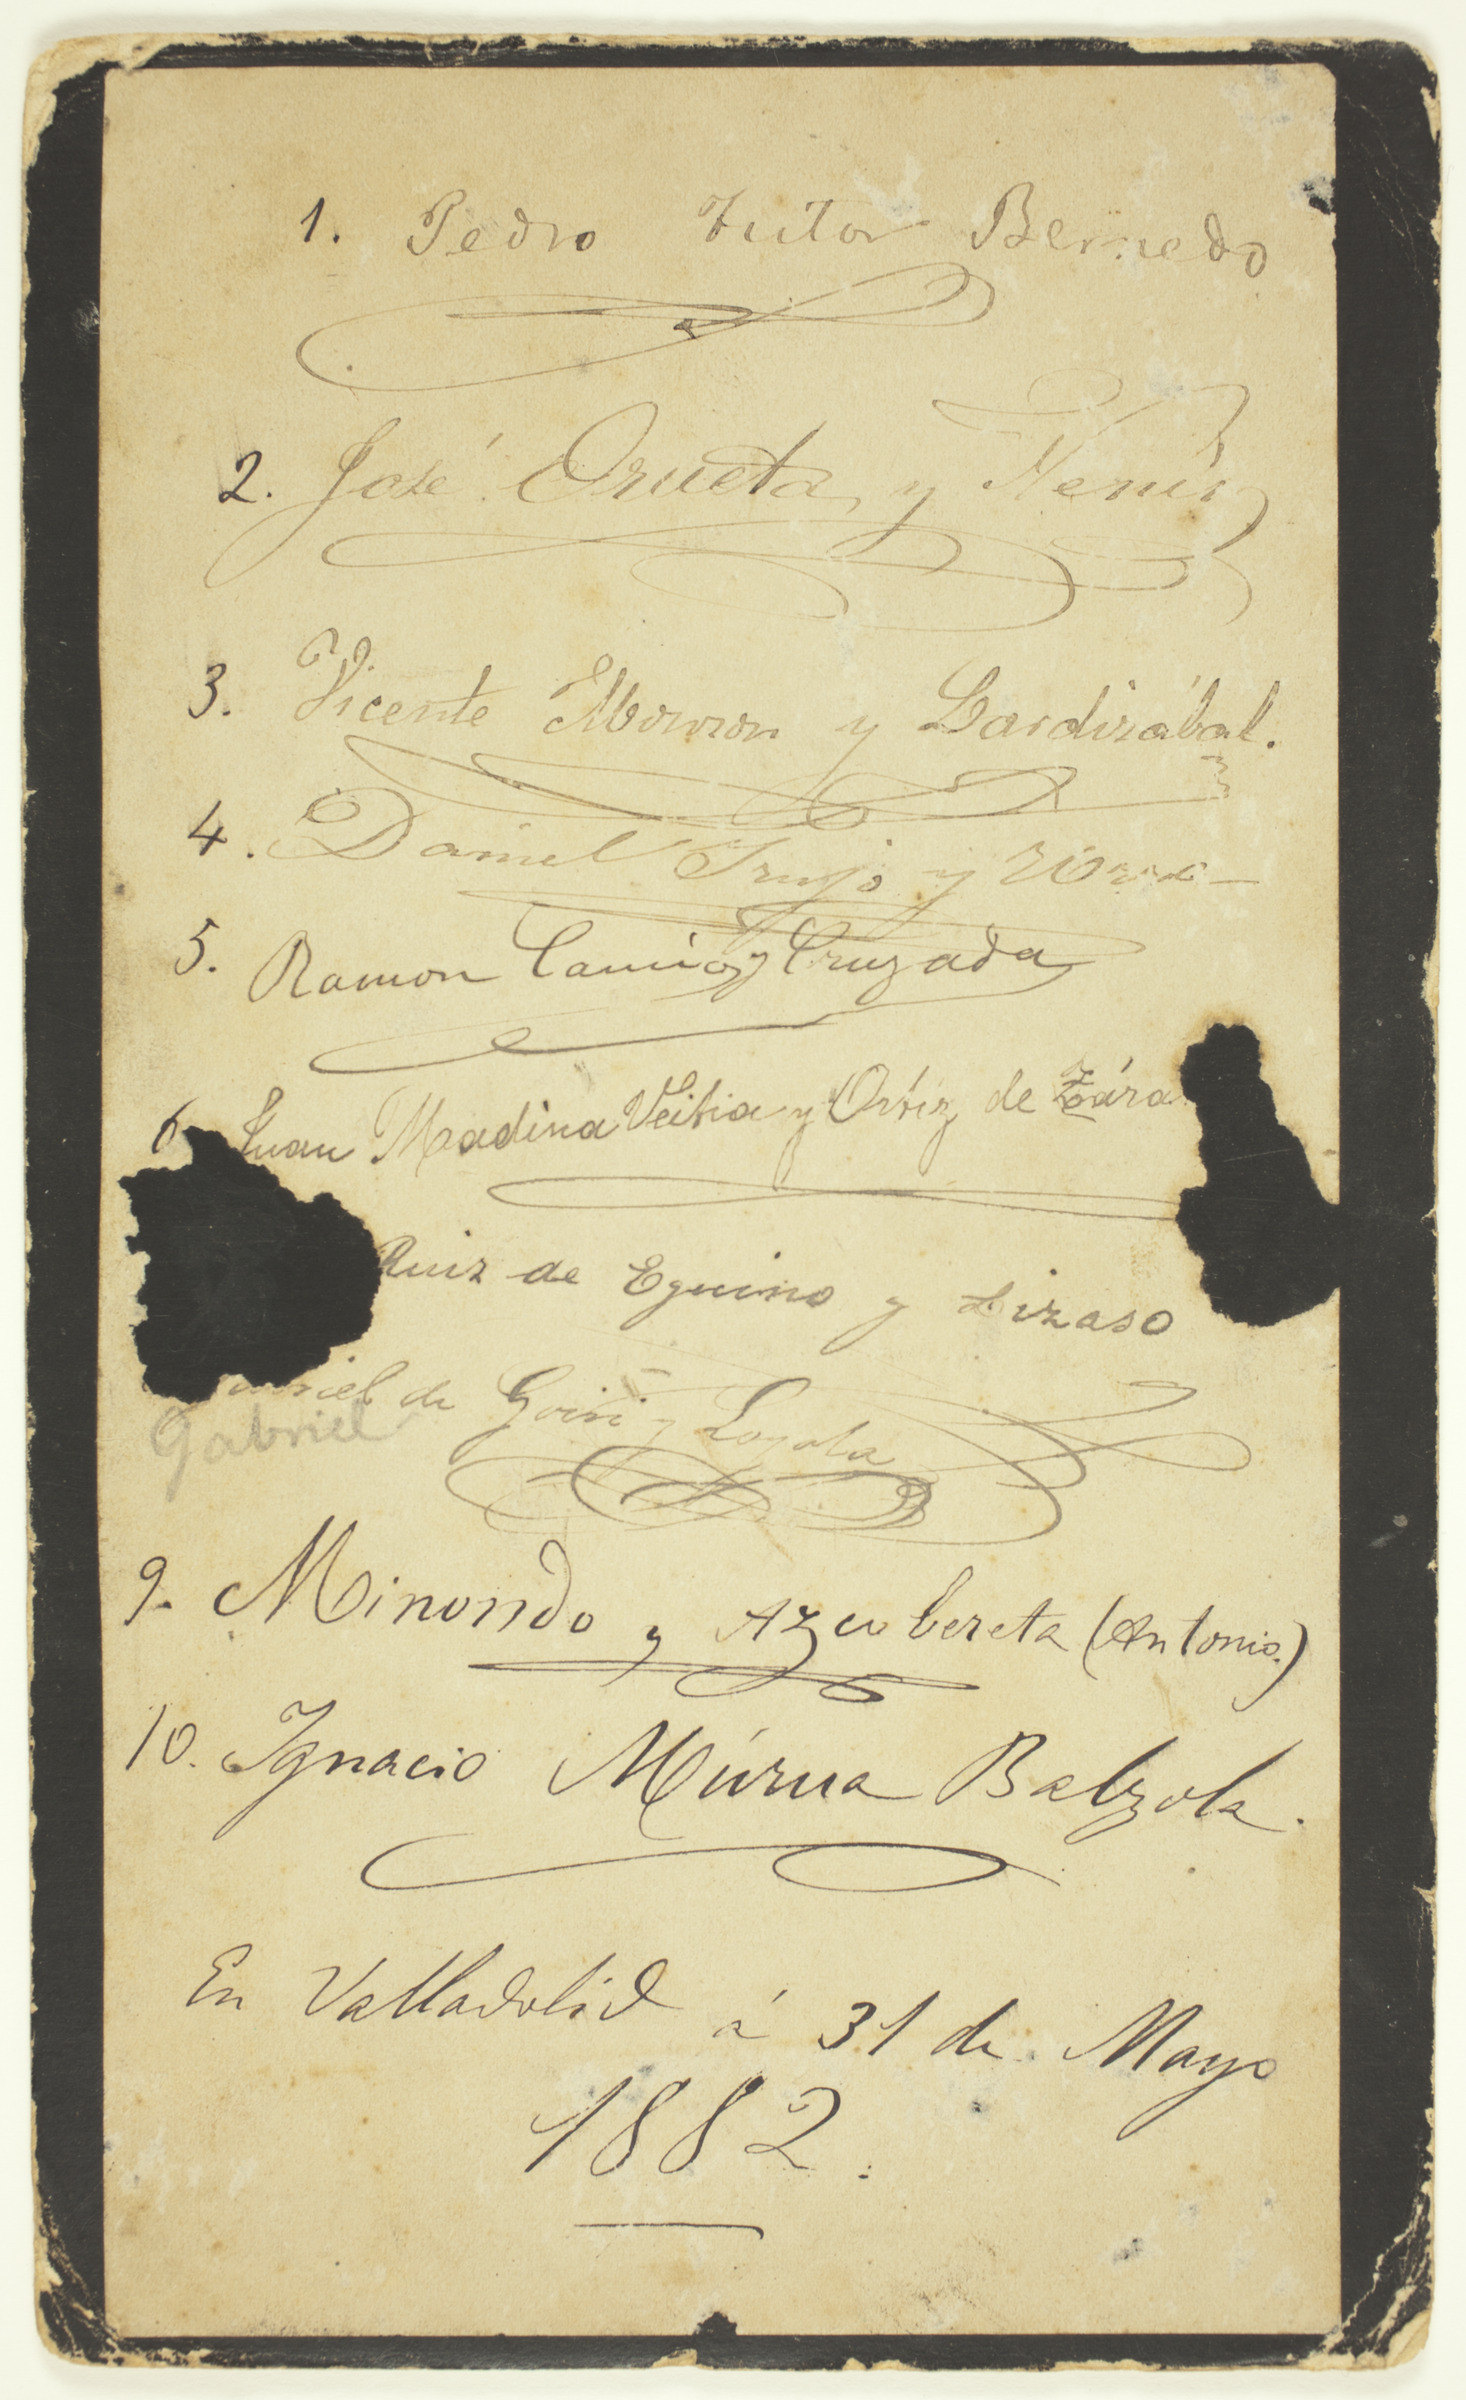 1. Pedro Tutor Bernedo
2. José Orueta y Nenin
3. Vicente Monzon y Lardizábal.
4. Daniel Irujo y
5. Ramon Camio y Cruzada
6 Juan Madina Veitia y Ortiz de Zára
Ruiz de Eguino y Lizaso
de Goñi y Loyola
Gabriel
9. Minondo y Azcubereta (Antonio.)
10. Ignacio Múrua Balzola.
En Valladolid á 31 de Mayo
1882.